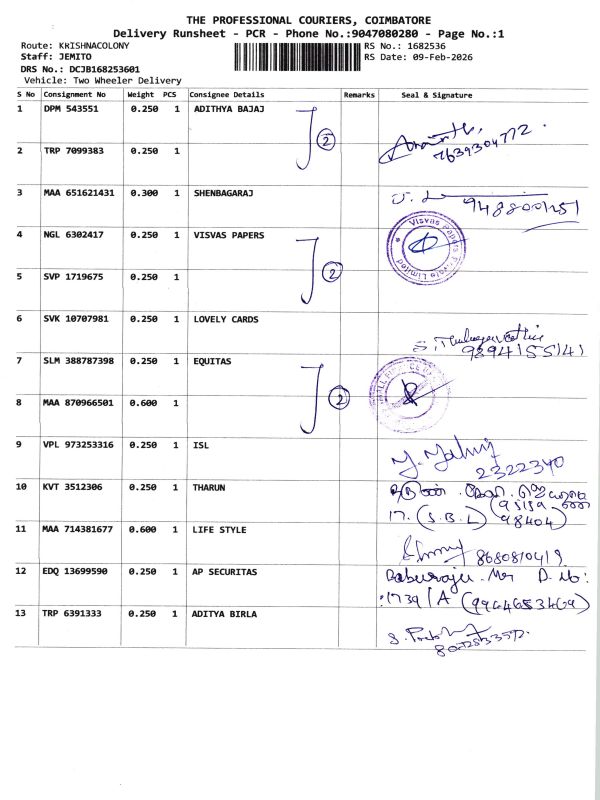 THE PROFESSIONAL COURIERS, COIMBATORE
Delivery Runsheet - PCR - Phone No.:9047080280 - Page No.:1
Route: KRISHNACOLONY
RS No.: 1682536
Staff: JEMITO
RS Date: 09-Feb-2026
DRS No.: DCJB168253601
Vehicle: Two Wheeler Delivery
S No Consignment No Weight PCS Consignee Details Remarks Seal & Signature
1 DPM 543551 0.250 1 ADITHYA BAJAJ
2
7639304772
2 TRP 7099383 0.250 1
3 MAA 651621431 0.300 1 SHENBAGARAJ
4 NGL 6302417 0.250 1 VISVAS PAPERS
Visvas Papers Private Limited
2
5 SVP 1719675 0.250 1
6 SVK 10707981 0.250 1 LOVELY CARDS
9894155141
7 SLM 388787398 0.250 1 EQUITAS
2
8 MAA 870966501 0.600 1
9 VPL 973253316 0.250 1 ISL
2322340
10 KVT 3512306 0.250 1 THARUN
17. (S.B.L)
98404)
11 MAA 714381677 0.600 1 LIFE STYLE
8680810419
12 EDQ 13699590 0.250 1 AP SECURITAS
D. No:
1739/A (9944653469)
13 TRP 6391333 0.250 1 ADITYA BIRLA